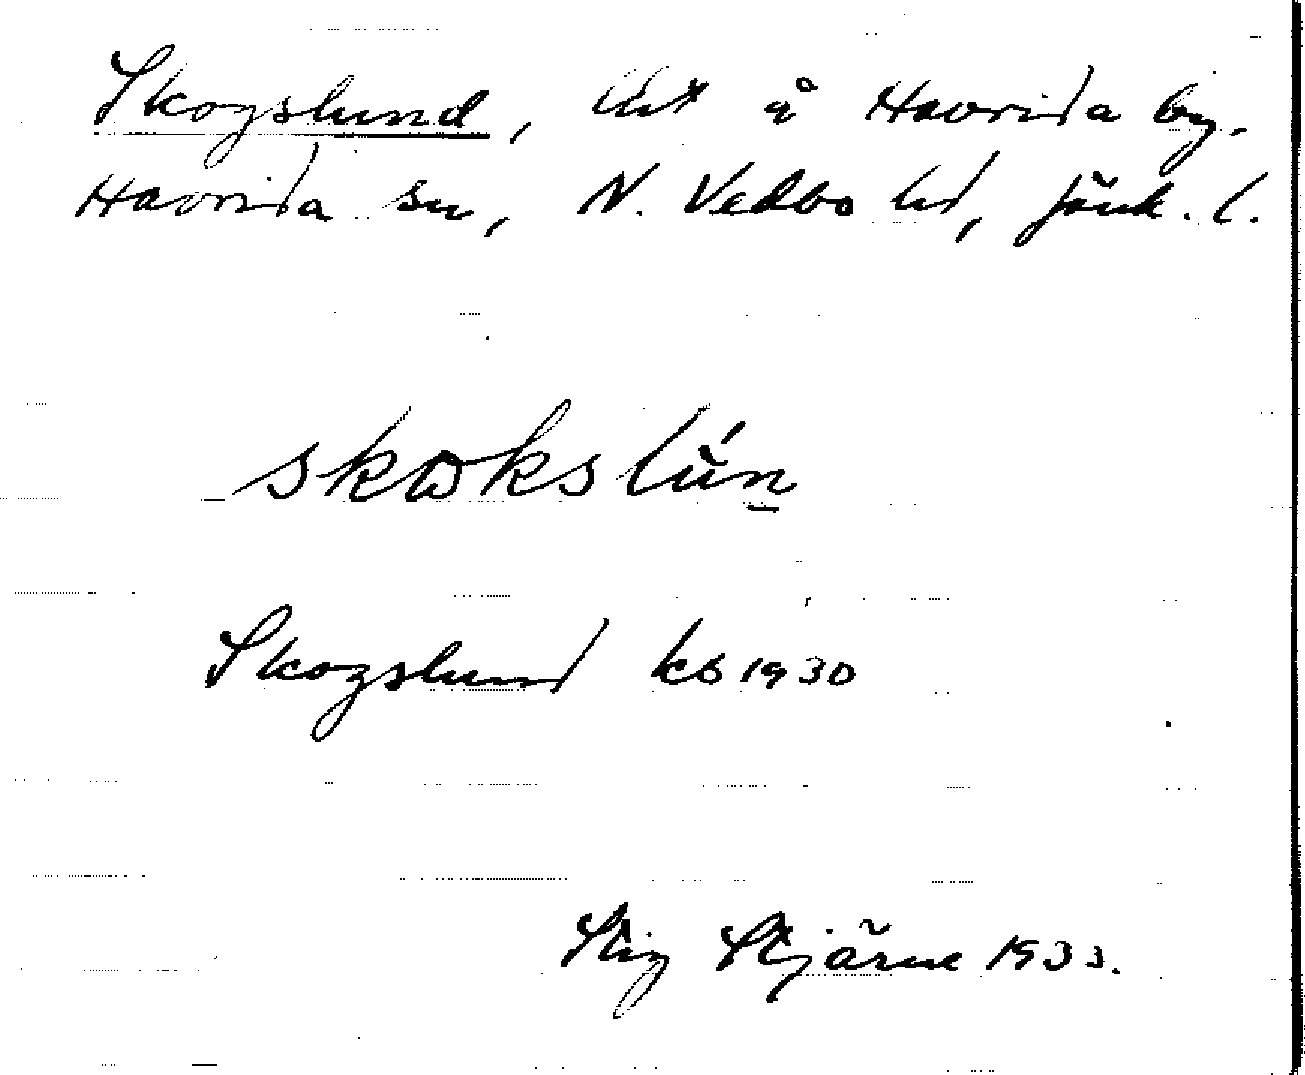 Skogslund, lht å Haurida by.
Haurida sn, N. Vedbo hd, Jönk. l.
skɷkslún̠
Skogslund kb 1930
Stig Stjärne 1933.